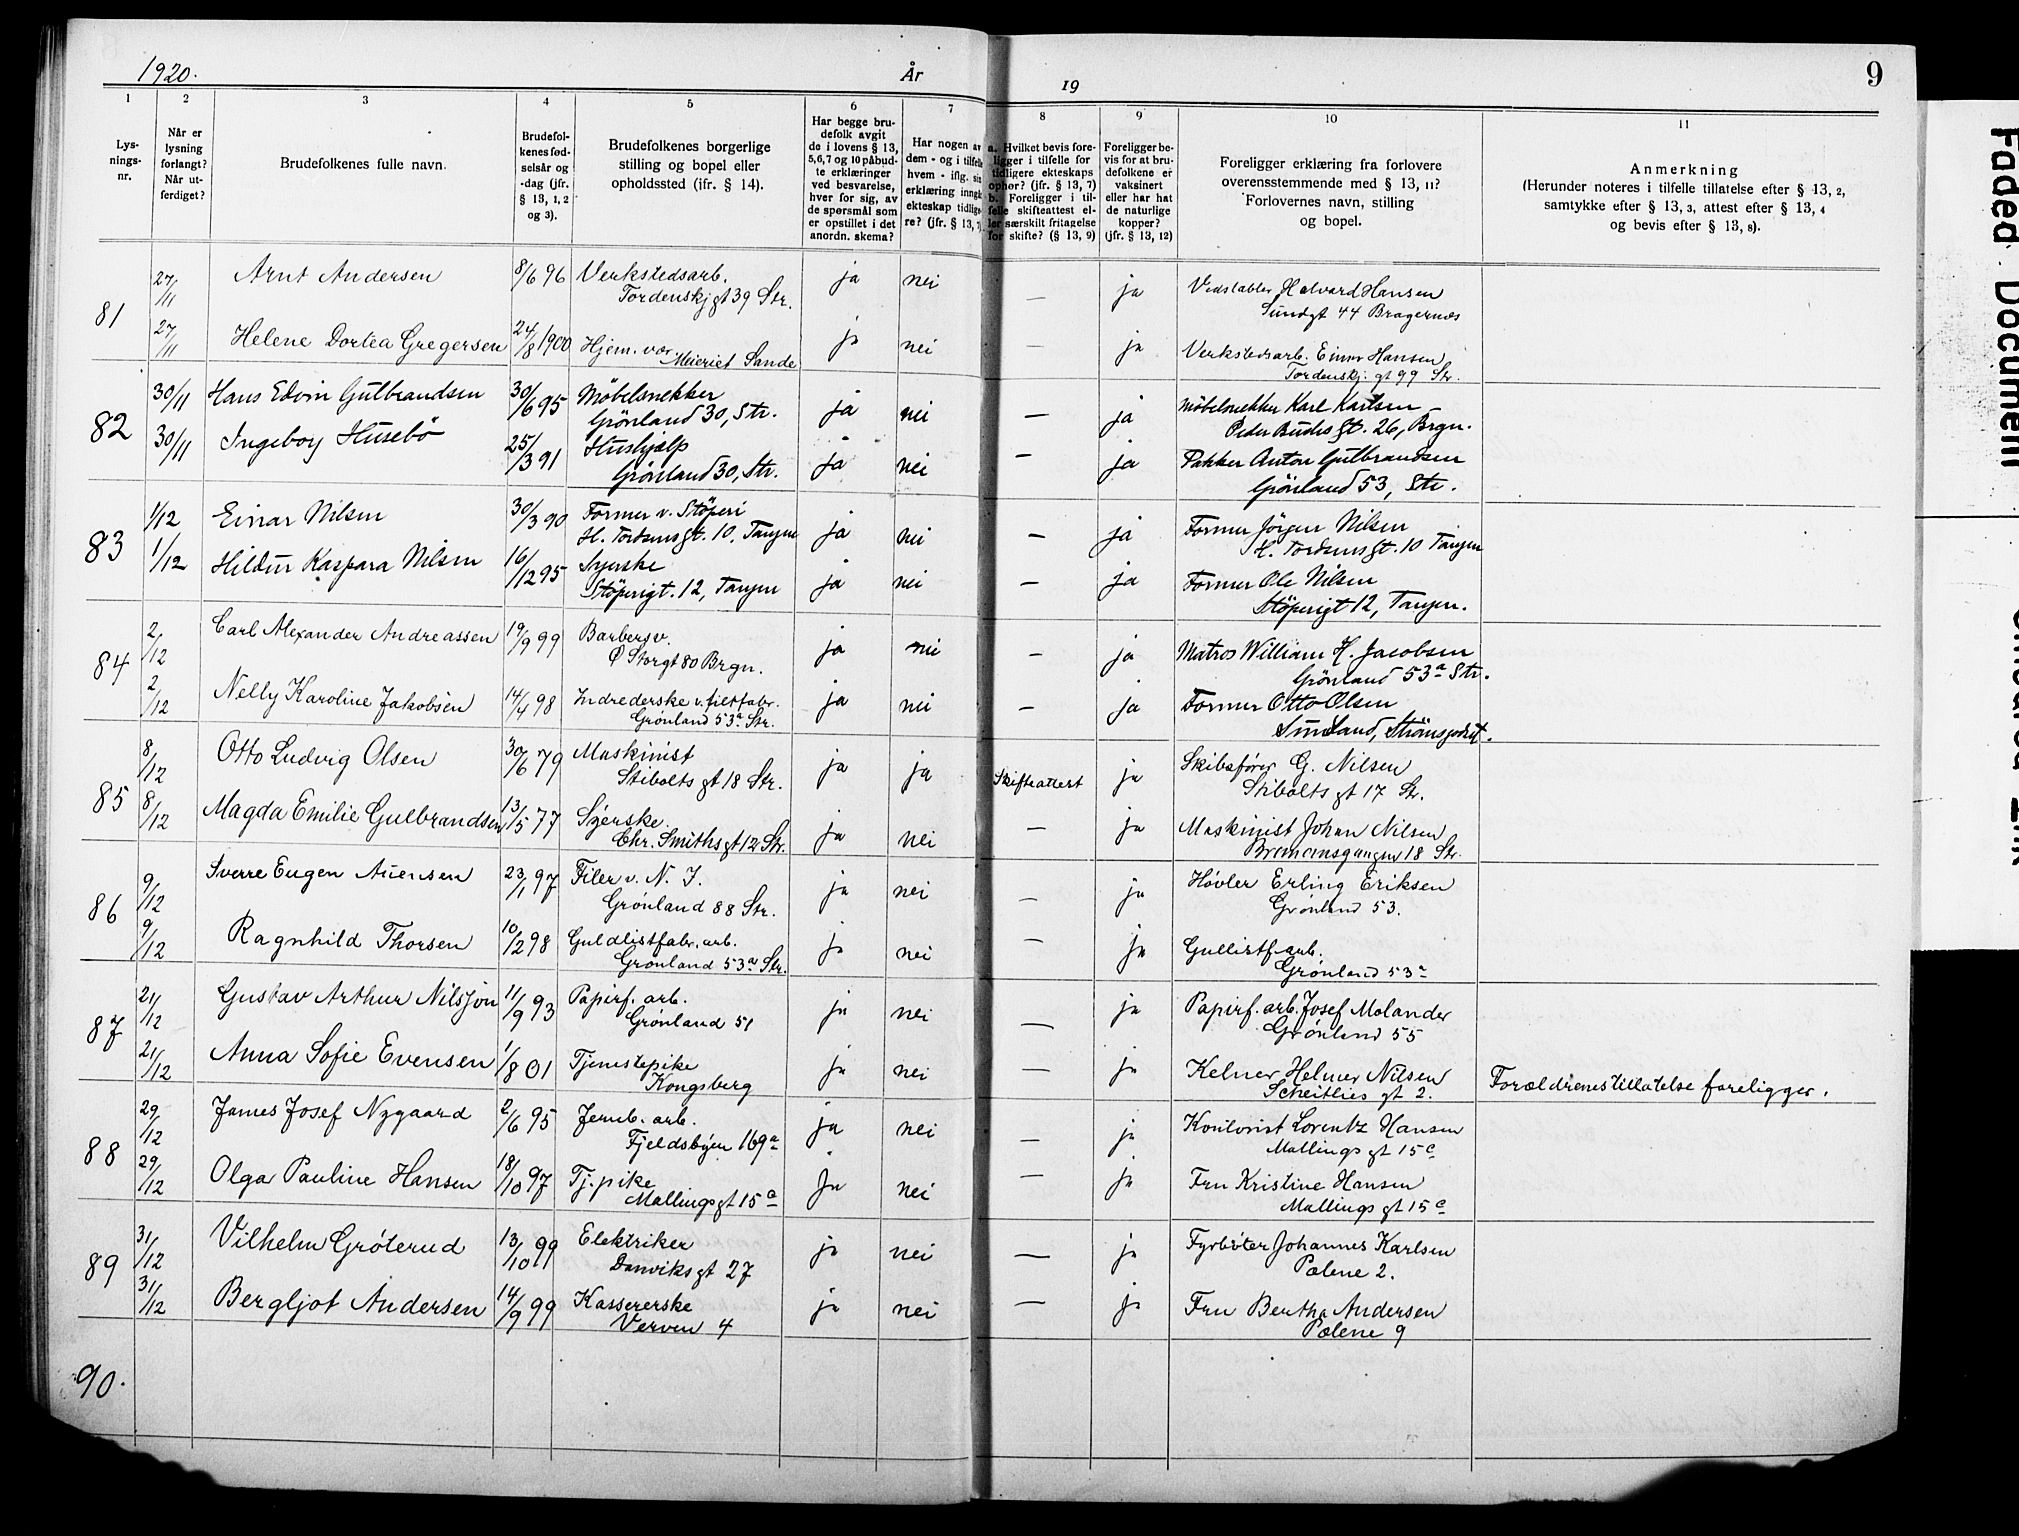 1920.
År
19
9
1
2
3
4
5
6
7
8
9
10
11
Lys-
nings-
nr.
Når er
lysning
forlangt?
Når ut-
ferdiget?
Brudefolkenes fulle navn.
Brudefol-
kenes fød-
selsår og
-dag (jfr.
§ 13, 1, 2
og 3).
Brudefolkenes borgerlige
stilling og bopel eller
opholdssted (jfr. § 14).
Har begge bru-
defolk avgit
de i lovens § 13,
5,6,7 og 10 påbud-
te erklæringer
ved besvarelse,
hver for sig, av
de spørsmål som
er opstillet i det
anordn. skema?
Har nogen av
dem - og i tilfelle
hvem - iflg. sin
erklæring inngått
ekteskap tidlige-
re? (jfr. § 13, 7).
a. Hvilket bevis fore-
ligger i tilfelle for
tidligere ekteskaps
ophør? (jfr. § 13, 7)
b. Foreligger i til-
felle skifteattest el-
ler særskilt fritagelse
for skifte? (§ 13, 9)
Foreligger be-
vis for at bru-
defolkene er
vaksinert
eller har hat
de naturlige
kopper?
(jfr. § 13, 12)
Foreligger erklæring fra forlovere
overensstemmende med § 13, 11?
Forlovernes navn, stilling
og bopel.
Anmerkning
(Herunder noteres i tilfelle tillatelse efter § 13, 2,
samtykke efter § 13, 3, attest efter § 13, 4
og bevis efter § 13, 8).
81
27/11 Arnt Andersen 8/6 96 Verkstedsarb. ja nei — ja Halvard Hansen
Tordenskj gt 39 Str. Sundgt 44 Bragernæs
27/11 Helene Dortea Gregersen 24/8 1900 Hjem. vær. ja nei — ja Verkstedsarb. Einar Hansen
Meieriet Sande Tordenskj. gt 99 Str.
82
30/11 Hans Edvin Gulbrandsen 30/6 95 Möbelsnekker ja nei — ja Möbelsnekker Karl Karlsen
Grönland 30, Str. Peder Buchs gt. 26, Brgn.
30/11 Ingeborg Husebö 25/3 91 Hushjælp ja nei — ja Pakker Anton Gulbrandsen
Grönland 30, Str. Grönland 53, Str.
83
1/12 Einar Nilsen 30/3 90 Former v. Støperi ja nei — ja Former Jörgen Nilsen
H. Tordsens gt. 10. Tangen H. Tordsens gt. 10 Tangen
1/12 Hildur Kaspara Nilsen 16/12 95 Syerske ja nei — ja Former Ole Nilsen
Støperigt. 12, Tangen Støperigt 12, Tangen.
84
2/12 Carl Alexander Andreassen 19/9 99 Barbersv. ja nei — ja Matros William H. Jacobsen
Ø Storgt 80 Brgn. Grönland 53a Str.
2/12 Nelly Karoline Jakobsen 14/4 98 Indrederske v. filtfabr. ja nei — ja Former Otto Olsen
Grønland 53a Str. Sundland, Strömsgodset.
85
8/12 Otto Ludvig Olsen 30/6 79 Maskinist ja ja Skifteattest ja Skibsfører G. Nilsen
Stibolts gt 18 Str. Stibolts gt 17 Str.
8/12 Magda Emilie Gulbrandsen 13/5 77 Syerske. ja nei — ja Maskinist Johan Nilsen
Chr. Smiths gt 12 Str. 18 Str.
86
9/12 Sverre Eugen 23/1 97 Filer v. N. J. ja nei — ja Høvler Erling Eriksen
Grønland 88 Str. Grønland 53.
9/12 Ragnhild Thorsen 10/12 98 Guldlistfabr. arb. ja nei — ja Gullistf. arb.
Grønland 53a Str. Grønland 53a
87
21/12 Gustav Arthur Nilsson 11/9 93 Papirf. arb. ja nei — ja Papirf. arb. Josef Molander
Grønland 51 Grønland 55
21/12 Anna Sofie Evensen 1/8 01 Tjenestepike ja nei — ja Kelner Helmer Nilsen Forældrenes tillatelse foreligger.
Kongsberg Scheitlies gt 2.
88
29/12 James Josef Nygaard 2/6 95 Jernb. arb. ja nei — ja Kontorist Lorentz Hansen
Fjeldsbyen 169a Mallings gt 15c
29/12 Olga Pauline Hansen 18/10 97 Tj. pike ja nei — ja Fru Kristine Hansen
Mallings gt 15c Mallings gt 15c
89
31/12 Vilhelm Grøterud 13/10 99 Elektriker ja nei — ja Fyrbøter Johannes Karlsen
Danviks gt 27 Pælene 2.
31/12 Bergljot Andersen 14/9 99 Kassererske ja nei — ja Fru Bertha Andersen
Verven 4 Pælene 9
90.
Faded Document